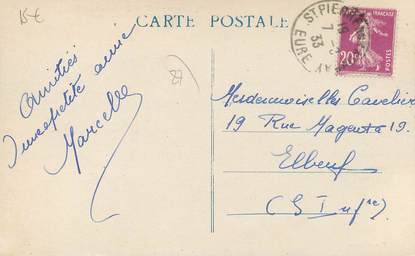 15€
CARTE POSTALE
ST PIERRE
18
7
33
EURE
FRANÇAISE
20c
POSTES
89
Amitiés
d'une petite amie
Marcelle
Mesdemoiselles Cavelier
19 Rue Magenta 19.
Elbeuf
(S Infre)